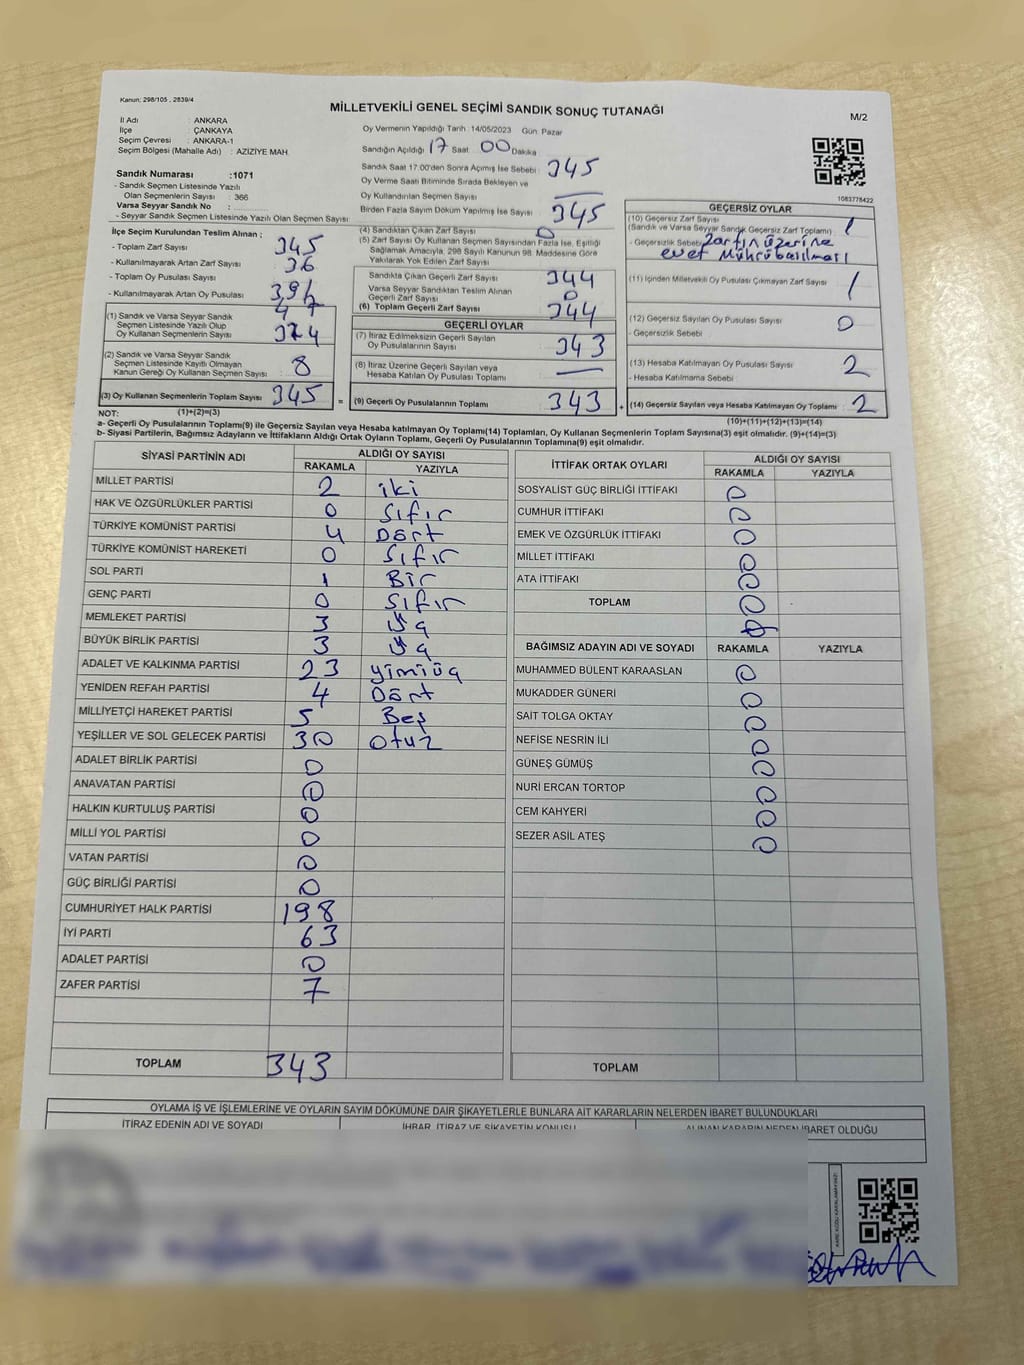 Kanun: 298/105 , 2839/4
MİLLETVEKİLİ GENEL SEÇİMİ SANDIK SONUÇ TUTANAĞI
M/2
İl Adı : ANKARA
İlçe : ÇANKAYA
Seçim Çevresi : ANKARA-1
Seçim Bölgesi (Mahalle Adı) : AZİZİYE MAH.
Sandık Numarası :1071
- Sandık Seçmen Listesinde Yazılı
Olan Seçmenlerin Sayısı : 366
Varsa Seyyar Sandık No :
- Seyyar Sandık Seçmen Listesinde Yazılı Olan Seçmen Sayısı :
Oy Vermenin Yapıldığı Tarih :14/05/2023 Gün: Pazar
Sandığın Açıldığı 17 Saat : 00 Dakika
Sandık Saat 17:00'den Sonra Açımış İse Sebebi : 345
Oy Verme Saati Bitiminde Sırada Bekleyen ve
Oy Kullandırılan Seçmen Sayısı
Birden Fazla Sayım Döküm Yapılmış İse Sayısı 345
1083778422
İlçe Seçim Kurulundan Teslim Alınan ;
- Toplam Zarf Sayısı : 345
- Kullanılmayarak Artan Zarf Sayısı : 36
- Toplam Oy Pusulası Sayısı :
- Kullanılmayarak Artan Oy Pusulası : 47
(1) Sandık ve Varsa Seyyar Sandık
Seçmen Listesinde Yazılı Olup
Oy Kullanan Seçmenlerin Sayısı :
(2) Sandık ve Varsa Seyyar Sandık
Seçmen Listesinde Kayıtlı Olmayan
Kanun Gereği Oy Kullanan Seçmen Sayısı : 8
(3) Oy Kullanan Seçmenlerin Toplam Sayısı 345
(4) Sandıktan Çıkan Zarf Sayısı : 0
(5) Zarf Sayısı Oy Kullanan Seçmen Sayısından Fazla İse, Eşitliği
Sağlamak Amacıyla, 298 Sayılı Kanunun 98. Maddesine Göre
Yakılarak Yok Edilen Zarf Sayısı :
Sandıkta Çıkan Geçerli Zarf Sayısı : 344
Varsa Seyyar Sandıktan Teslim Alınan
Geçerli Zarf Sayısı : 0
(6) Toplam Geçerli Zarf Sayısı : 344
GEÇERLİ OYLAR
(7) İtiraz Edilmeksizin Geçerli Sayılan
Oy Pusulalarının Sayısı : 343
(8) İtiraz Üzerine Geçerli Sayılan veya
Hesaba Katılan Oy Pusulası Toplamı :
= (9) Geçerli Oy Pusulalarının Toplamı : 343 +
GEÇERSİZ OYLAR
(10) Geçersiz Zarf Sayısı : 1
(Sandık ve Varsa Seyyar Sandık Geçersiz Zarf Toplamı)
- Geçersizlik Sebebi : Zarfın üzerine
evet mührü basılması
(11) İçinden Milletvekili Oy Pusulası Çıkmayan Zarf Sayısı : 1
(12) Geçersiz Sayılan Oy Pusulası Sayısı : 0
- Geçersizlik Sebebi :
(13) Hesaba Katılmayan Oy Pusulası Sayısı : 2
- Hesaba Katılmama Sebebi :
(14) Geçersiz Sayılan veya Hesaba Katılmayan Oy Pusulası Toplamı : 2
NOT: (1)+(2)=(3) (10)+(11)+(12)+(13)=(14)
a- Geçerli Oy Pusulalarının Toplamı(9) ile Geçersiz Sayılan veya Hesaba katılmayan Oy Toplamı(14) Toplamları, Oy Kullanan Seçmenlerin Toplam Sayısına(3) eşit olmalıdır. (9)+(14)=(3)
b- Siyasi Partilerin, Bağımsız Adayların ve İttifakların Aldığı Ortak Oyların Toplamı, Geçerli Oy Pusulalarının Toplamına(9) eşit olmalıdır.
SİYASİ PARTİNİN ADI ALDIĞI OY SAYISI
RAKAMLA YAZIYLA
MİLLET PARTİSİ 2 iki
HAK VE ÖZGÜRLÜKLER PARTİSİ 0 Sıfır
TÜRKİYE KOMÜNİST PARTİSİ 4 Dört
TÜRKİYE KOMÜNİST HAREKETİ 0 Sıfır
SOL PARTİ 1 Bir
GENÇ PARTİ 0 Sıfır
MEMLEKET PARTİSİ 3 Üç
BÜYÜK BİRLİK PARTİSİ 3 Üç
ADALET VE KALKINMA PARTİSİ 23 yimiüç
YENİDEN REFAH PARTİSİ 4 Dört
MİLLİYETÇİ HAREKET PARTİSİ 5 Beş
YEŞİLLER VE SOL GELECEK PARTİSİ 30 otuz
ADALET BİRLİK PARTİSİ 0
ANAVATAN PARTİSİ 0
HALKIN KURTULUŞ PARTİSİ 0
MİLLİ YOL PARTİSİ 0
VATAN PARTİSİ 0
GÜÇ BİRLİĞİ PARTİSİ 0
CUMHURİYET HALK PARTİSİ 198
İYİ PARTİ 63
ADALET PARTİSİ 0
ZAFER PARTİSİ 7
TOPLAM 343
İTTİFAK ORTAK OYLARI ALDIĞI OY SAYISI
RAKAMLA YAZIYLA
SOSYALİST GÜÇ BİRLİĞİ İTTİFAKI 0
CUMHUR İTTİFAKI 0
EMEK VE ÖZGÜRLÜK İTTİFAKI 0
MİLLET İTTİFAKI 0
ATA İTTİFAKI 0
TOPLAM 0
BAĞIMSIZ ADAYIN ADI VE SOYADI RAKAMLA YAZIYLA
MUHAMMED BÜLENT KARAASLAN 0
MUKADDER GÜNERİ 0
SAİT TOLGA OKTAY 0
NEFİSE NESRİN İLİ 0
GÜNEŞ GÜMÜŞ 0
NURİ ERCAN TORTOP 0
CEM KAHYERİ 0
SEZER ASİL ATEŞ 0
TOPLAM
OYLAMA İŞ VE İŞLEMLERİNE VE OYLARIN SAYIM DÖKÜMÜNE DAİR ŞİKAYETLERLE BUNLARA AİT KARARLARIN NELERDEN İBARET BULUNDUKLARI
İTİRAZ EDENİN ADI VE SOYADI İHBAR, İTİRAZ VE ŞİKAYETİN KONUSU ALINAN KARARIN NEDEN İBARET OLDUĞU